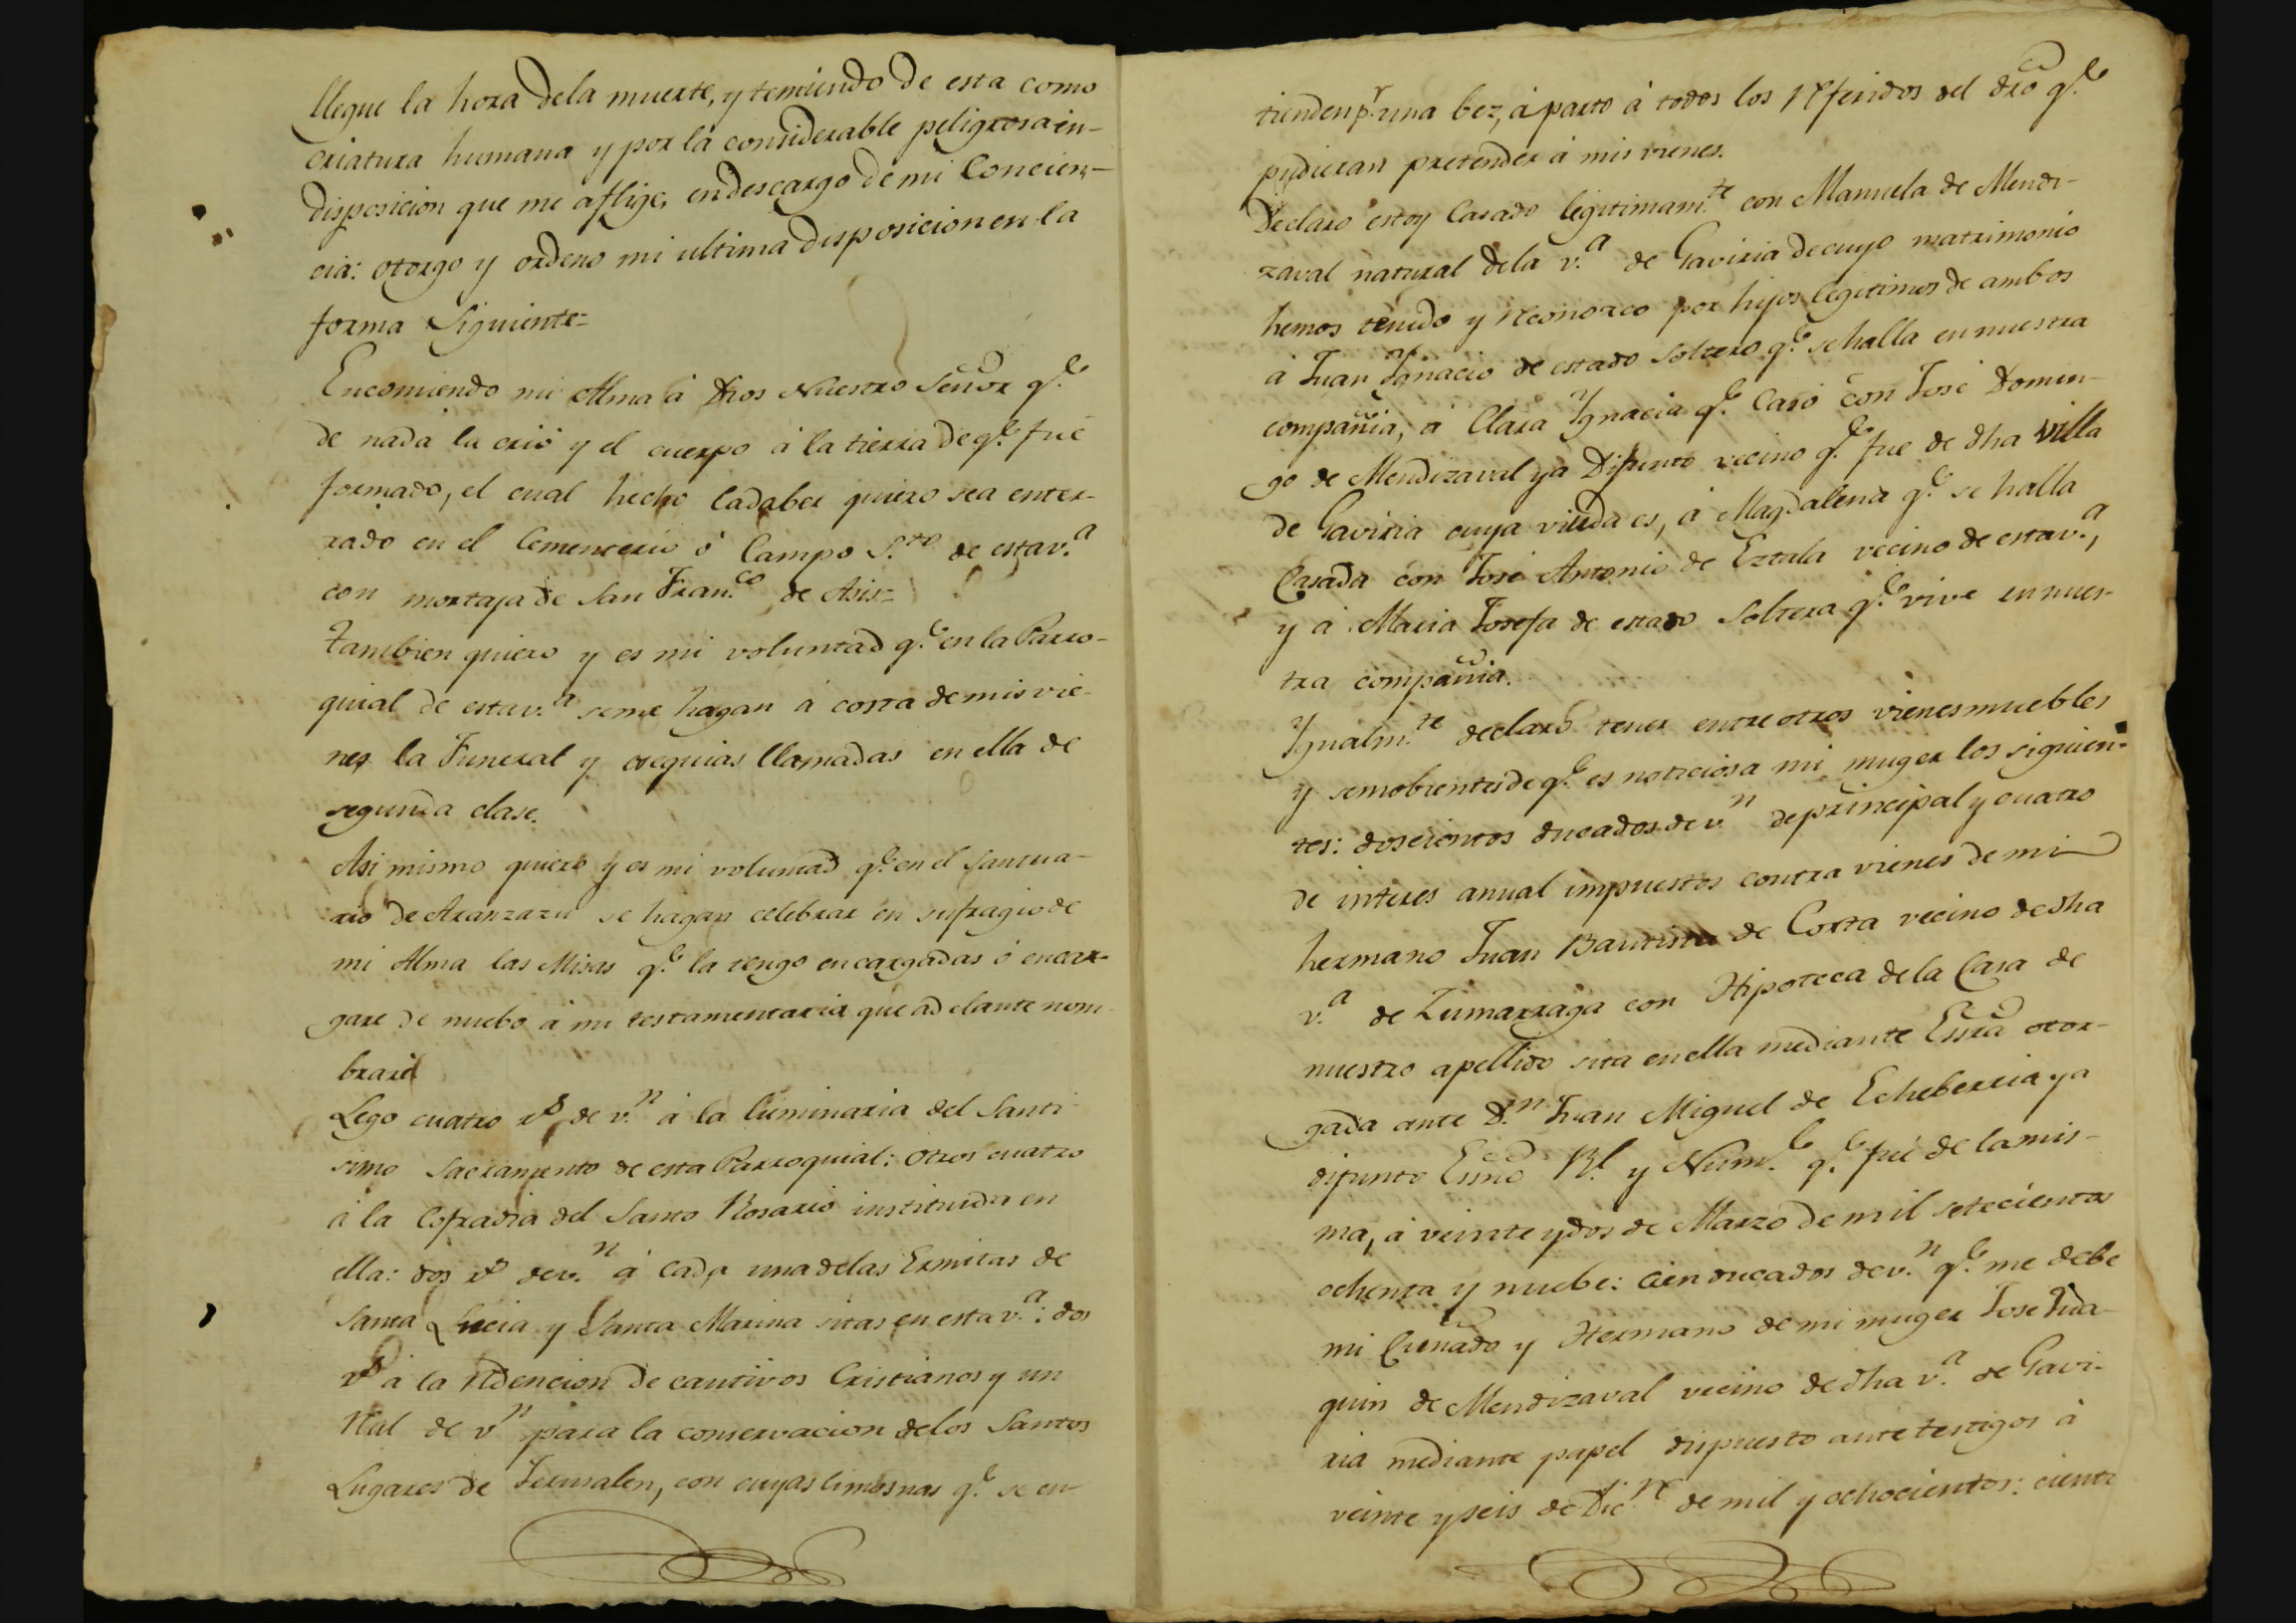 llegue la hora dela muerte, y temiendo de esta como
criatura humana y por la considerable peligrosa in-
disposicion que me aflige, en descargo de mi Concien-
cia: otorgo y ordeno mi ultima disposicion en la
forma Siguiente=
Encomiendo mi Alma á Dios Nuestro Señor q.e
de nada la crió y el cuerpo á la tierra de q.e fue
formado, el cual hecho Cadaber quiero sea enter-
rado en el Cementerio ó Campo S.to de esta v.a
con mortaja de San Fran.co de Asis=
tambien quiero y es mi voluntad q.e en la Parro-
quial de esta v.a se me hagan á costa de mis vie-
nes la Funeral y exequias llamadas en ella de
segunda clase.
Asi mismo quiero y es mi voluntad q.e en el Santua-
rio de Aranzazu se hagan celebrar en sufragio de
mi Alma las Misas q.e la tengo encargadas ó encar-
gare de nuebo á mi testamentaria que adelante nom-
braré
Lego cuatro rs de v.n á la luminaria del Santi-
simo Sacramento de esta Parroquial: otros cuatro
á la Cofradia del Santo Rosario instituida en
ella: dos rs de v.n á cada una delas Ermitas de
Santa Lucia y Santa Marina sitas en esta v.a: dos
rs á la redencion de cautivos Cristianos y un
real de v.n para la conservacion delos Santos
Lugares de Jerusalen, con cuyas limosnas q.e se en-
tienden p.r una bez, áparto á todos los referidos del dro q.e
pudieran pretender á mis vienes.
Declaro estoy Casado legitimam.te con Manuela de Mendi-
zaval natural dela v.a de Gaviria de cuyo matrimonio
hemos tenido y reconozco por hijos legitimos de ambos
á Juan Ygnacio de estado Soltero q.e se halla en nuestra
compañia, á Clara Ygnacia q.e Casó con José Domin-
go de Mendizaval ya Difunto vecino q.e fue de dha villa
de Gaviria cuya viuda es, á Magdalena q.e se halla
Casada con José Antonio de Eztala vecino de esta v.a,
y á Maria Josefa de estado Soltera q.e vive en nues-
tra compañia.
Ygualm.te declaro tener entre otros vienes muebles
y semobientes de q.e es noticiosa mi muger los siguien-
tes: doscientos ducados de v.n de principal y cuatro
de interes anual impuestos contra vienes de mi
hermano Juan Bautista de Corta vecino de dha
v.a de Zumarraga con Hipoteca dela Casa de
nuestro apellido sita en ella mediante Essra otor-
gada ante D.n Juan Miguel de Echeberria ya
difunto Essno Rl. y Num.l q.e fué de la mis-
ma, á veinte y dos de Marzo de mil setecientos
ochenta y nuebe: cien ducados de v.n q.e me debe
mi Cuñado y Hermano de mi muger Jose Jua-
quin de Mendizaval vecino de dha v.a de Gavi-
ria mediante papel dispuesto ante testigos á
veinte y seis de Dic.re de mil y ochocientos: ciento